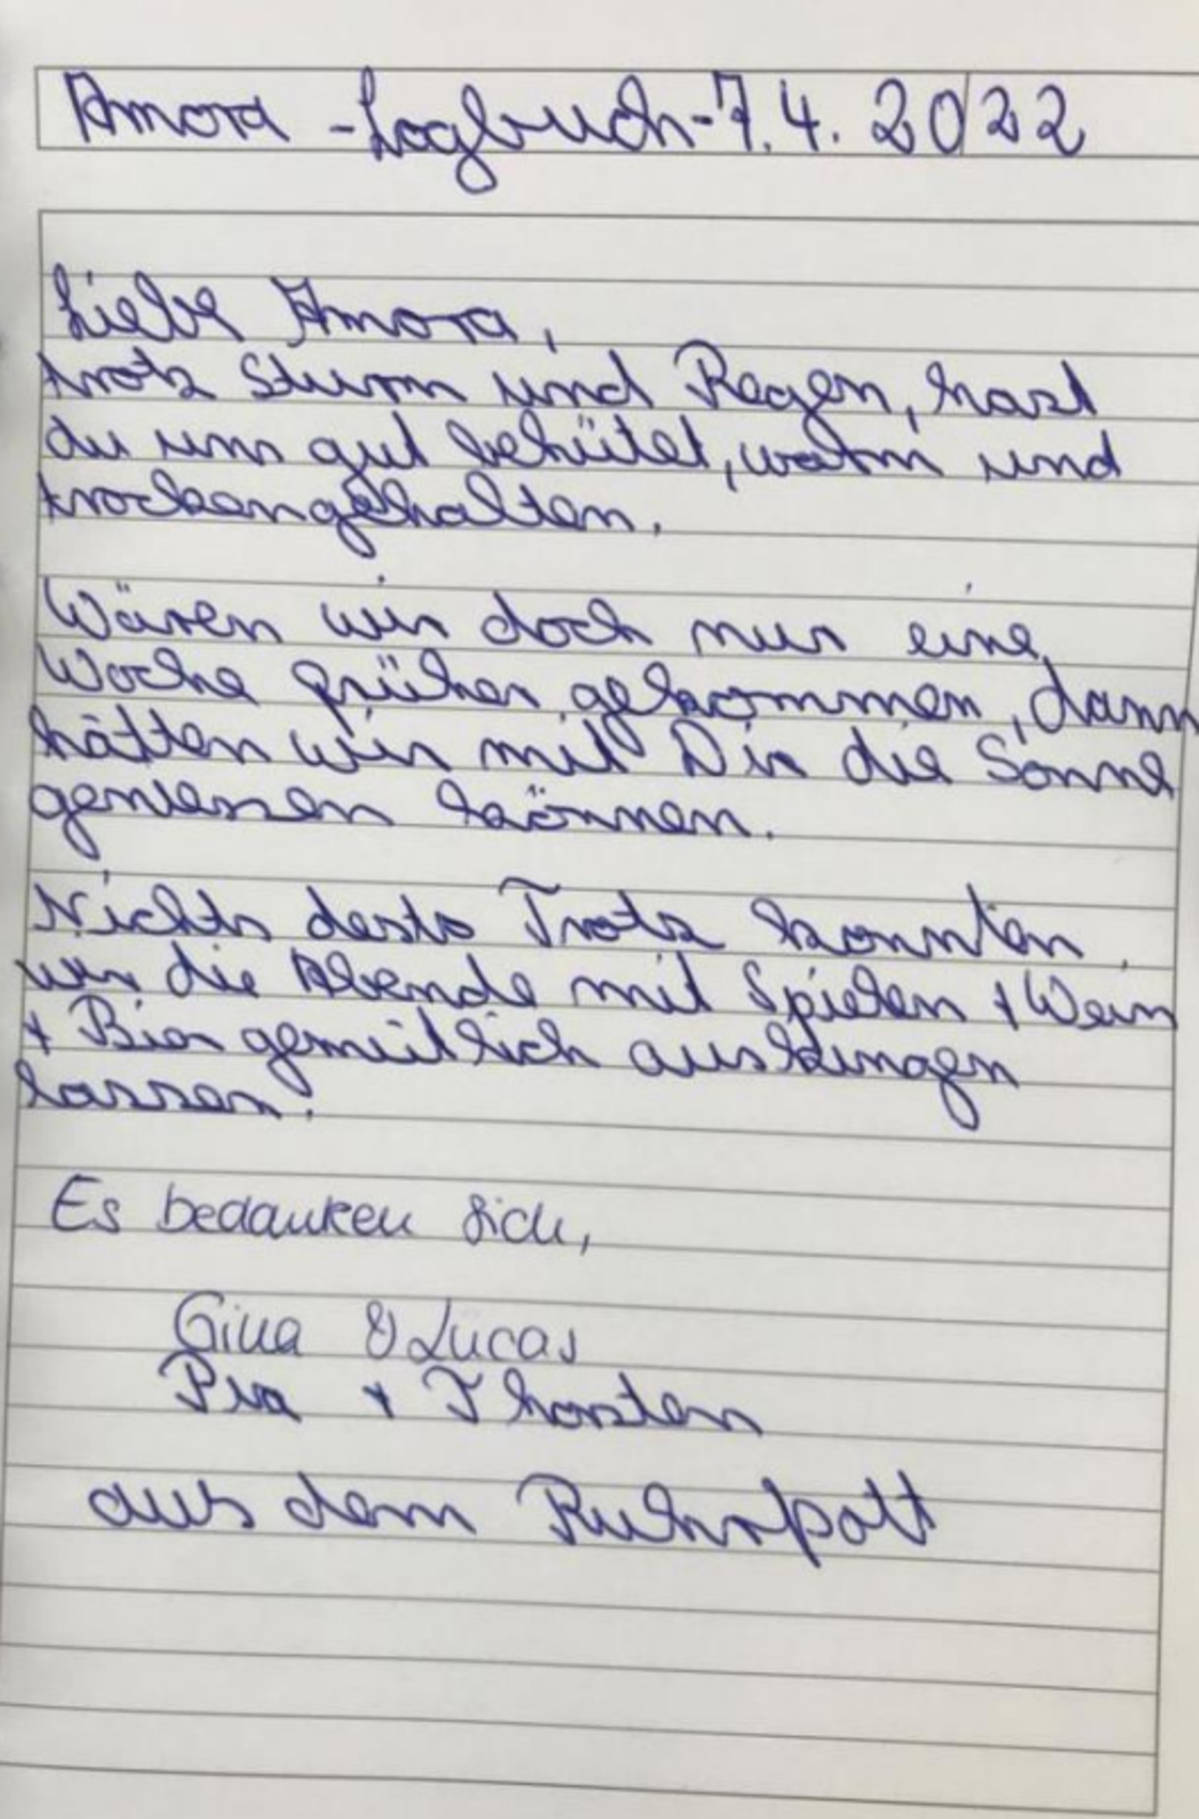 Amora - Logbuch - 7.4.2022
Liebe Amora,
trotz Sturm und Regen, hast
du uns gut behütet, warm und
trockengehalten.
Wären wir doch nur eine
Woche früher gekommen, dann
hätten wir mit Dir die Sonne
geniessen können.
Nichts desto Trotz konnten
wir die Abende mit Spielen + Wein
+ Bier gemütlich ausklingen
lassen!
Es bedanken sich,
Gina & Lucas
Pia + Thorsten
aus dem Ruhrpott